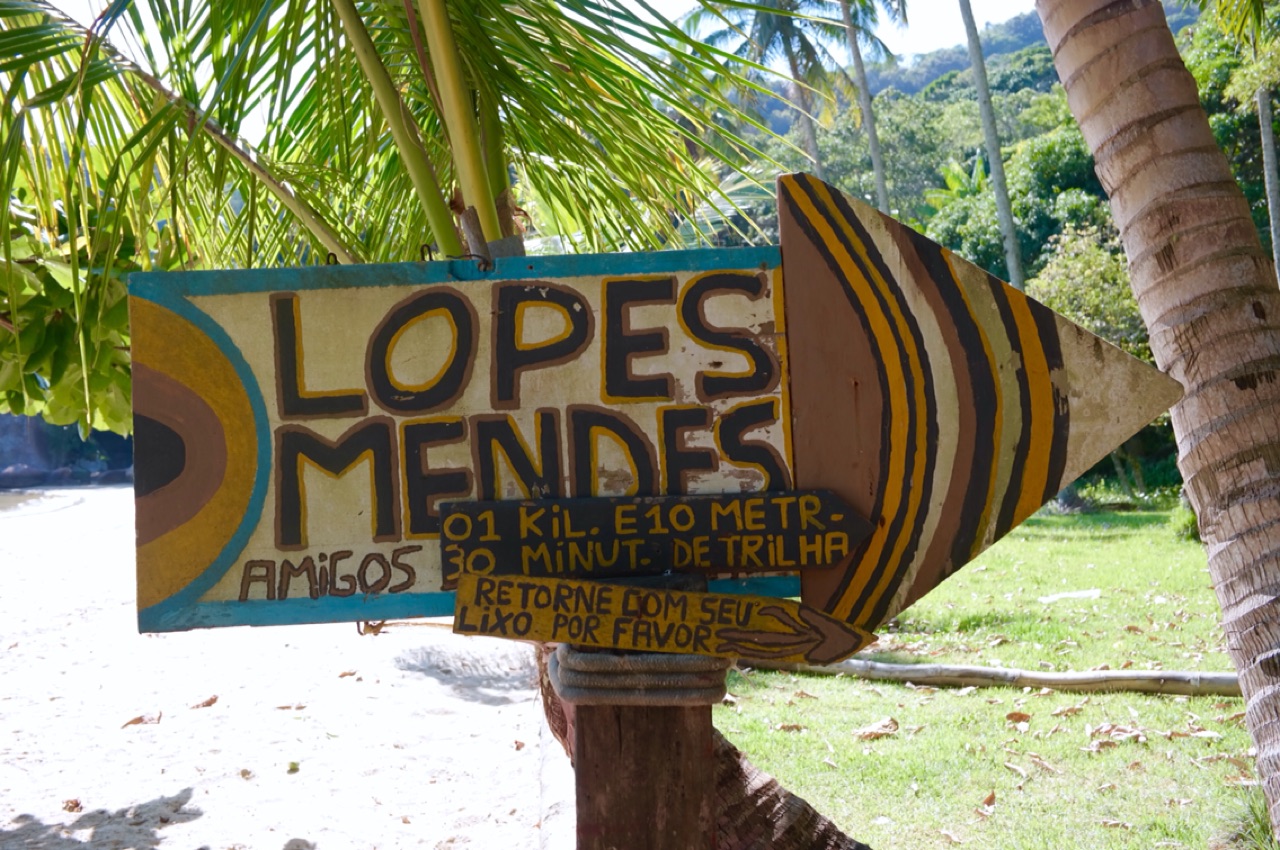 LOPES
MENDES
AMiGOS
01 KiL. E 10 METR-
30 MiNUT. DE TRiLHA
RETORNE COM SEU
LiXO POR FAVOR